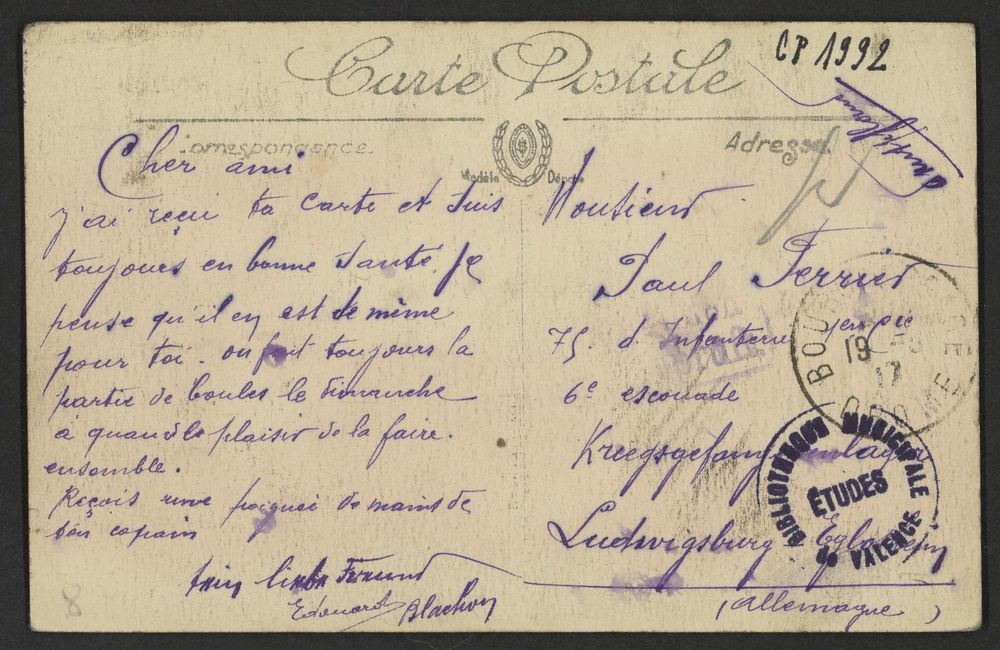 CP 1992
Carte Postale
Correspondance
Adresse
Modèle Déposé
Cher ami
j'ai reçu ta carte et suis
toujours en bonne santé. Je
pense qu'il en est de même
pour toi. on fait toujours la
partie de boules le dimanche
a quand le plaisir de la faire.
ensemble.
Reçois une poignei de mains de
ton copain
Edouard Blachon
Monsieur
Paul Perrier
75. d. Infanterie 1er Cie
6e escouade
Kreegsgefangenenlager
Ludwigsburg - Eglosheim
(Allemagne)
BOURG
19
17
DROME
BIBLIOTHEQUE MUNICIPALE
ÉTUDES
DE VALENCE
8